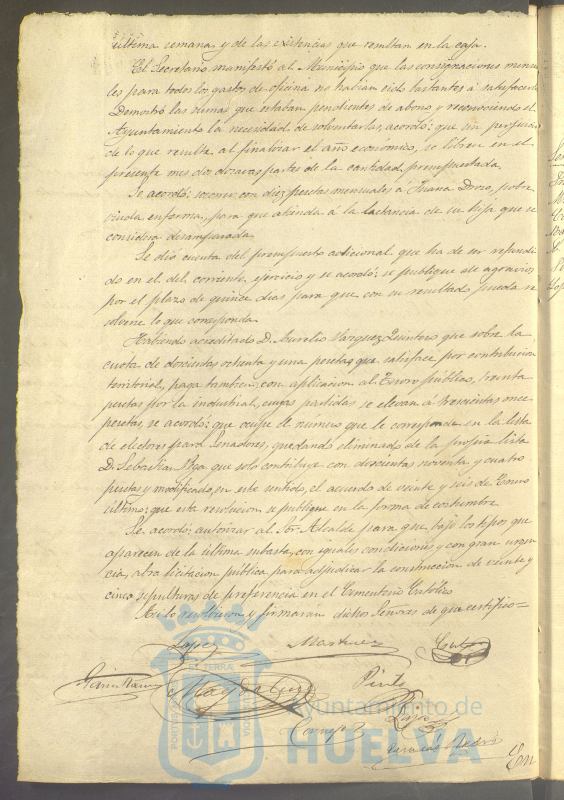 última semana y de las existencias que resultan en la caja.
El Secretario manifestó al Municipio que las consignaciones mensua
les para todos los gastos de oficina no habian sido bastantes á satisfacerlos
Demostró las sumas que estaban pendientes de abono y reconociendo el
Ayuntamiento la necesidad de solventarlas, acordó: que sin perjuicio
de lo que resulte al finalizar el año económico, se libren en el
presente mes dos dozavas partes de la cantidad presupuestada.
Se acordó: socorrer con diez pesetas mensuales á Juana Doro, pobre
viuda enferma, para que atenda á la lactancia de su hija que se
considera desamparada.
Se dió cuenta del presupuesto adicional que ha de ser refundi
do en el del corriente ejercicio y se acordó: se publique de agravios
por el plazo de quince dias para que con su resultado pueda re
solverse lo que corresponda.
Habiendo acreditado D. Aurelio Vazquez Quintero que sobre la
cuota de doscientas ochenta y una pesetas que satisface por contribucion
territorial, paga tambien, con aplicacion al Tesoro público, treinta
pesetas por la industrial, cuyas partidas se elevan á trescientas once
pesetas se acordó: que ocupe el numero que le corresponde en la lista
de electores para Senadores, quedando eliminado de la propia lista
D. Sebastian que solo contribuye con doscientas noventa y cuatro
pesetas y modificado, en este sentido, el acuerdo de veinte y seis de Enero
último; que esta resolucion se publique en la forma de costumbre.
Se acordó: autorizar al Sor. Alcalde para que bajo los tipos que
aparecen de la última subasta, con iguales condiciones y con gran urgen
cia, abra licitacion pública para adjudicar la construccion de veinte y
cinco sepulturas de preferencia en el Cementerio Católico
Asi lo resolvieron y firmarán dichos Señores de que certifico=
Lopez Martinez
Pinto
Cornejo
Ayuntamiento de
HUELVA
En